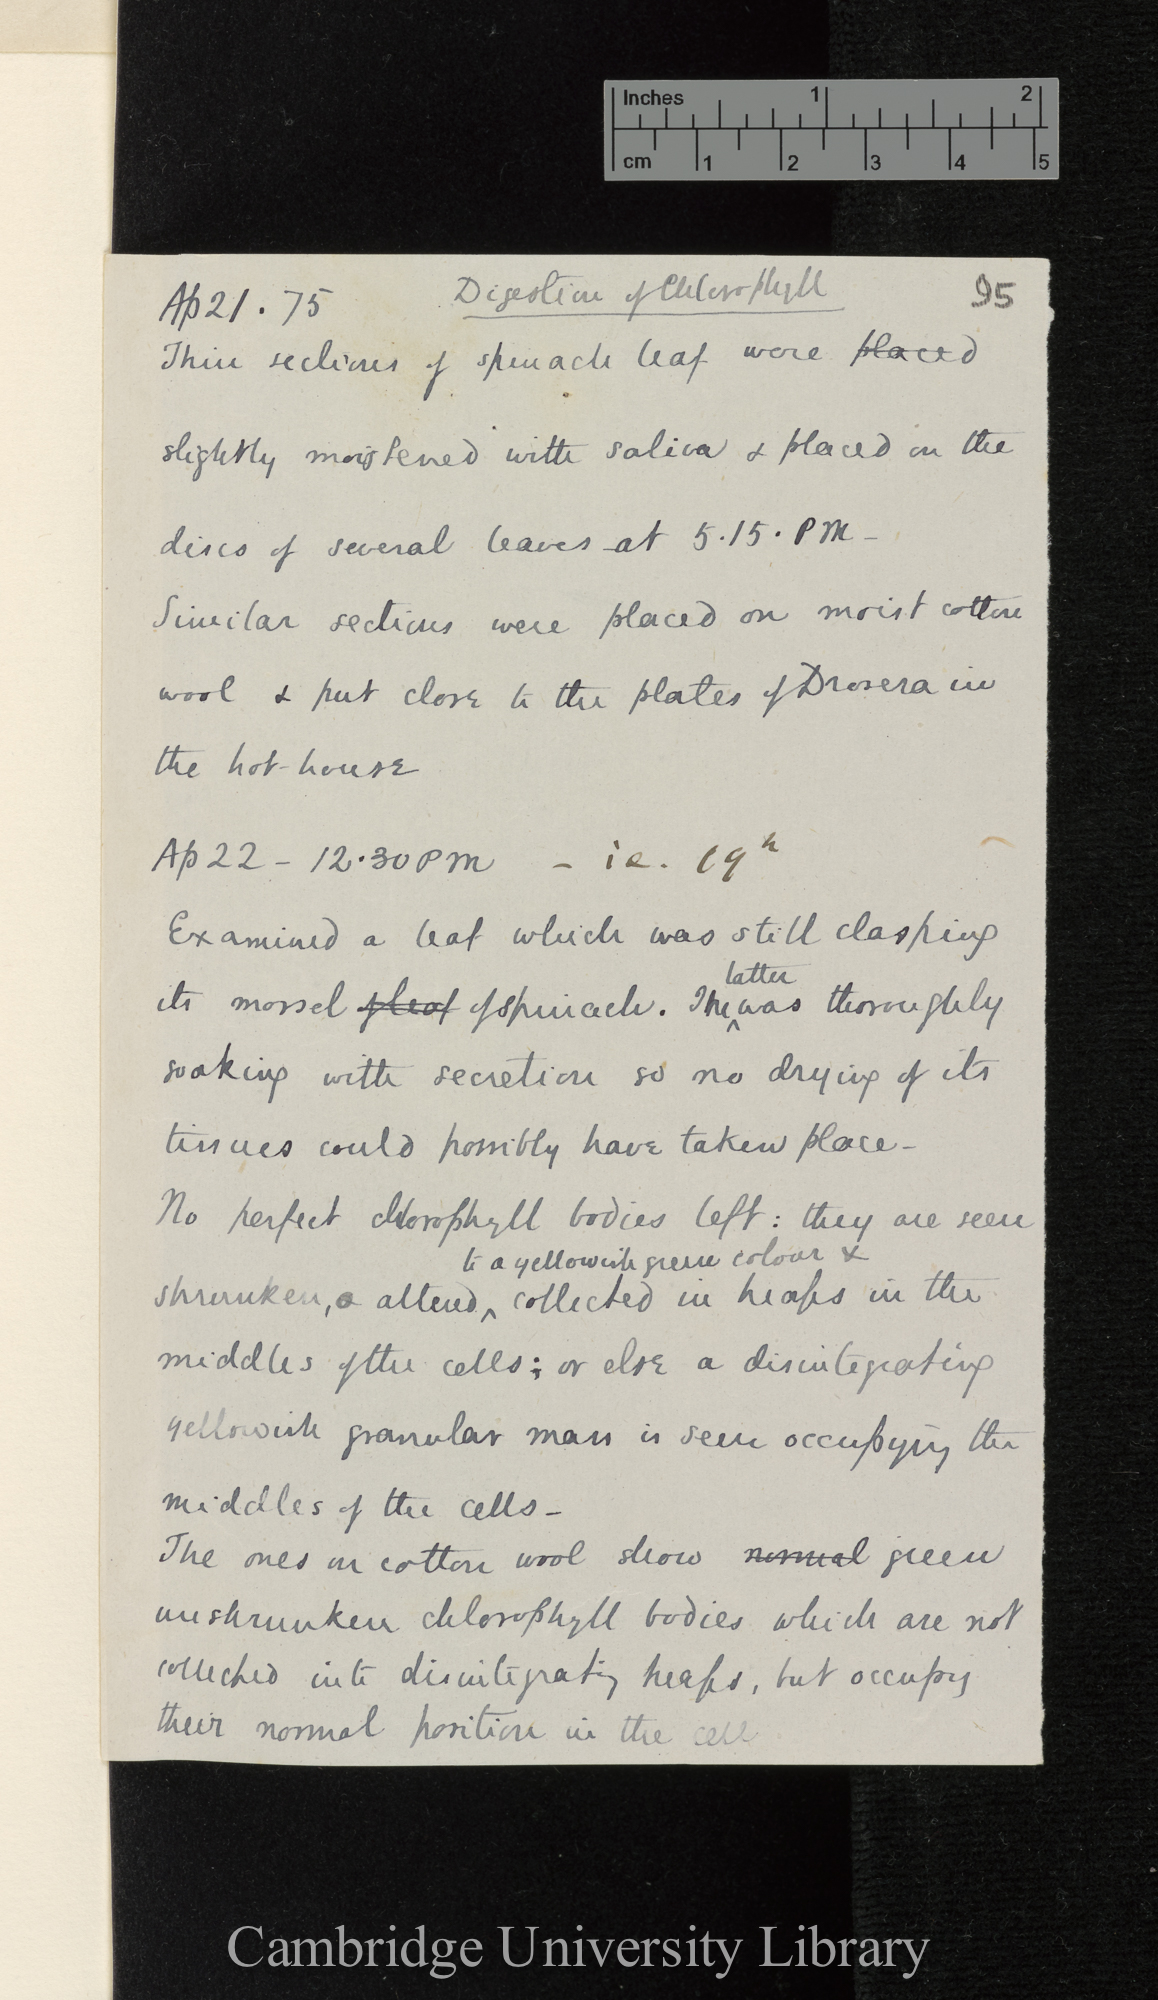 Inches 1 2
cm 1 2 3 4 5
Ap 21. 75 Digestion of Chlorophyll 95
Thin sections of spinach leaf were placed
slightly moistened with saliva & placed on the
discs of several leaves at 5.15. PM –
Similar sections were placed on moist cotton
wool & put close to the plates of Drosera in
the hot-house
Ap 22 – 12.30 PM – ie. 19h
Examined a leaf which was still clasping
latter
its morsel of leaf of spinach. The ^ was thoroughly
soaking with secretion so no drying of its
tissues could possibly have taken place –
No perfect chlorophyll bodies left: they are seen
to a yellowish green colour &
shrunken, & altered ^ collected in heaps in the
middles of the cells; or else a disintegrating
yellowish granular mass is seen occupying the
middles of the cells –
The ones on cotton wool show normal green
unshrunken chlorophyll bodies which are not
collected into disintegrating heaps, but occupy
their normal position in the cell
Cambridge University Library